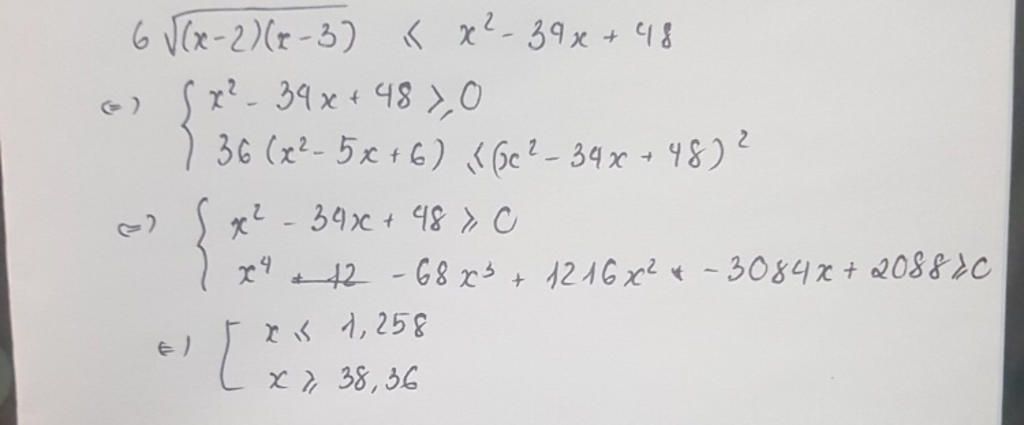 6 √(x-2)(x-3) ≤ x² - 34x + 48
⇔ { x² - 34x + 48 ≥ 0
36 (x² - 5x + 6) ≤ (x² - 34x + 48)²
⇔ { x² - 34x + 48 ≥ 0
x⁴ - 68x³ + 1216x² - 3084x + 2088 ≥ 0
⇔ [ x ≤ 1,258
x ≥ 38,36